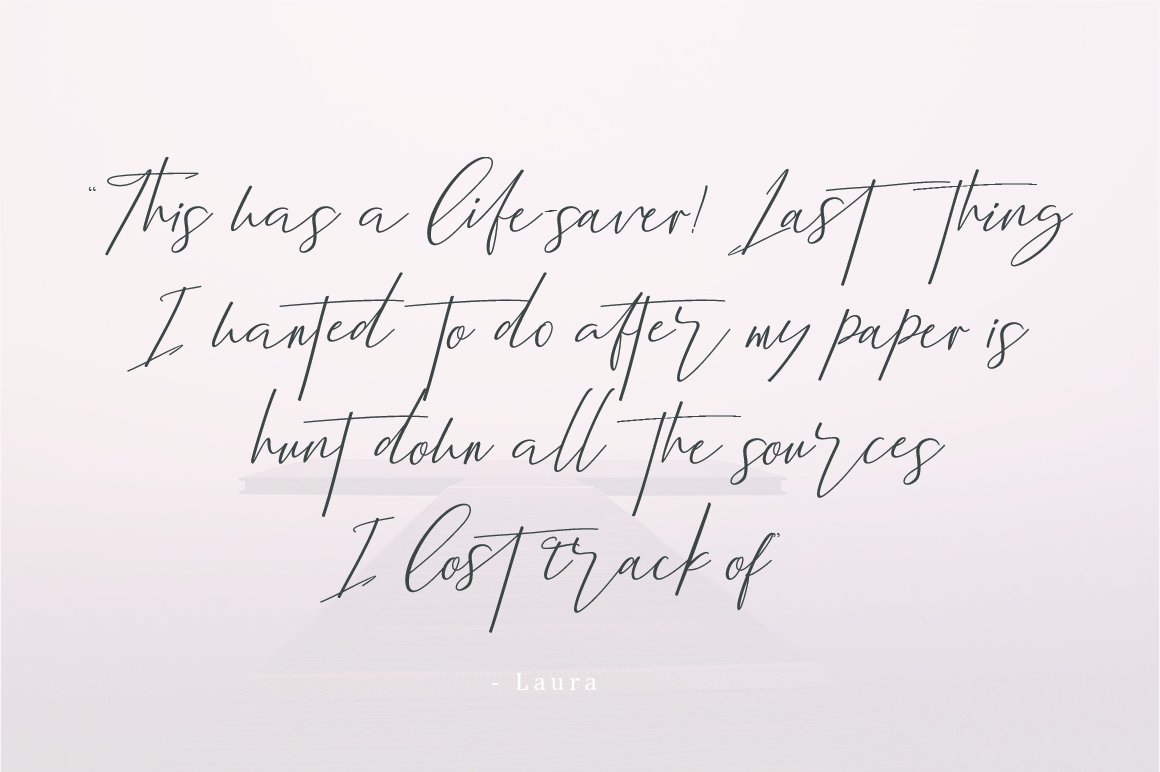 “This was a life-saver! Last thing
I wanted to do after my paper is
hunt down all the sources
I lost track of”
- Laura